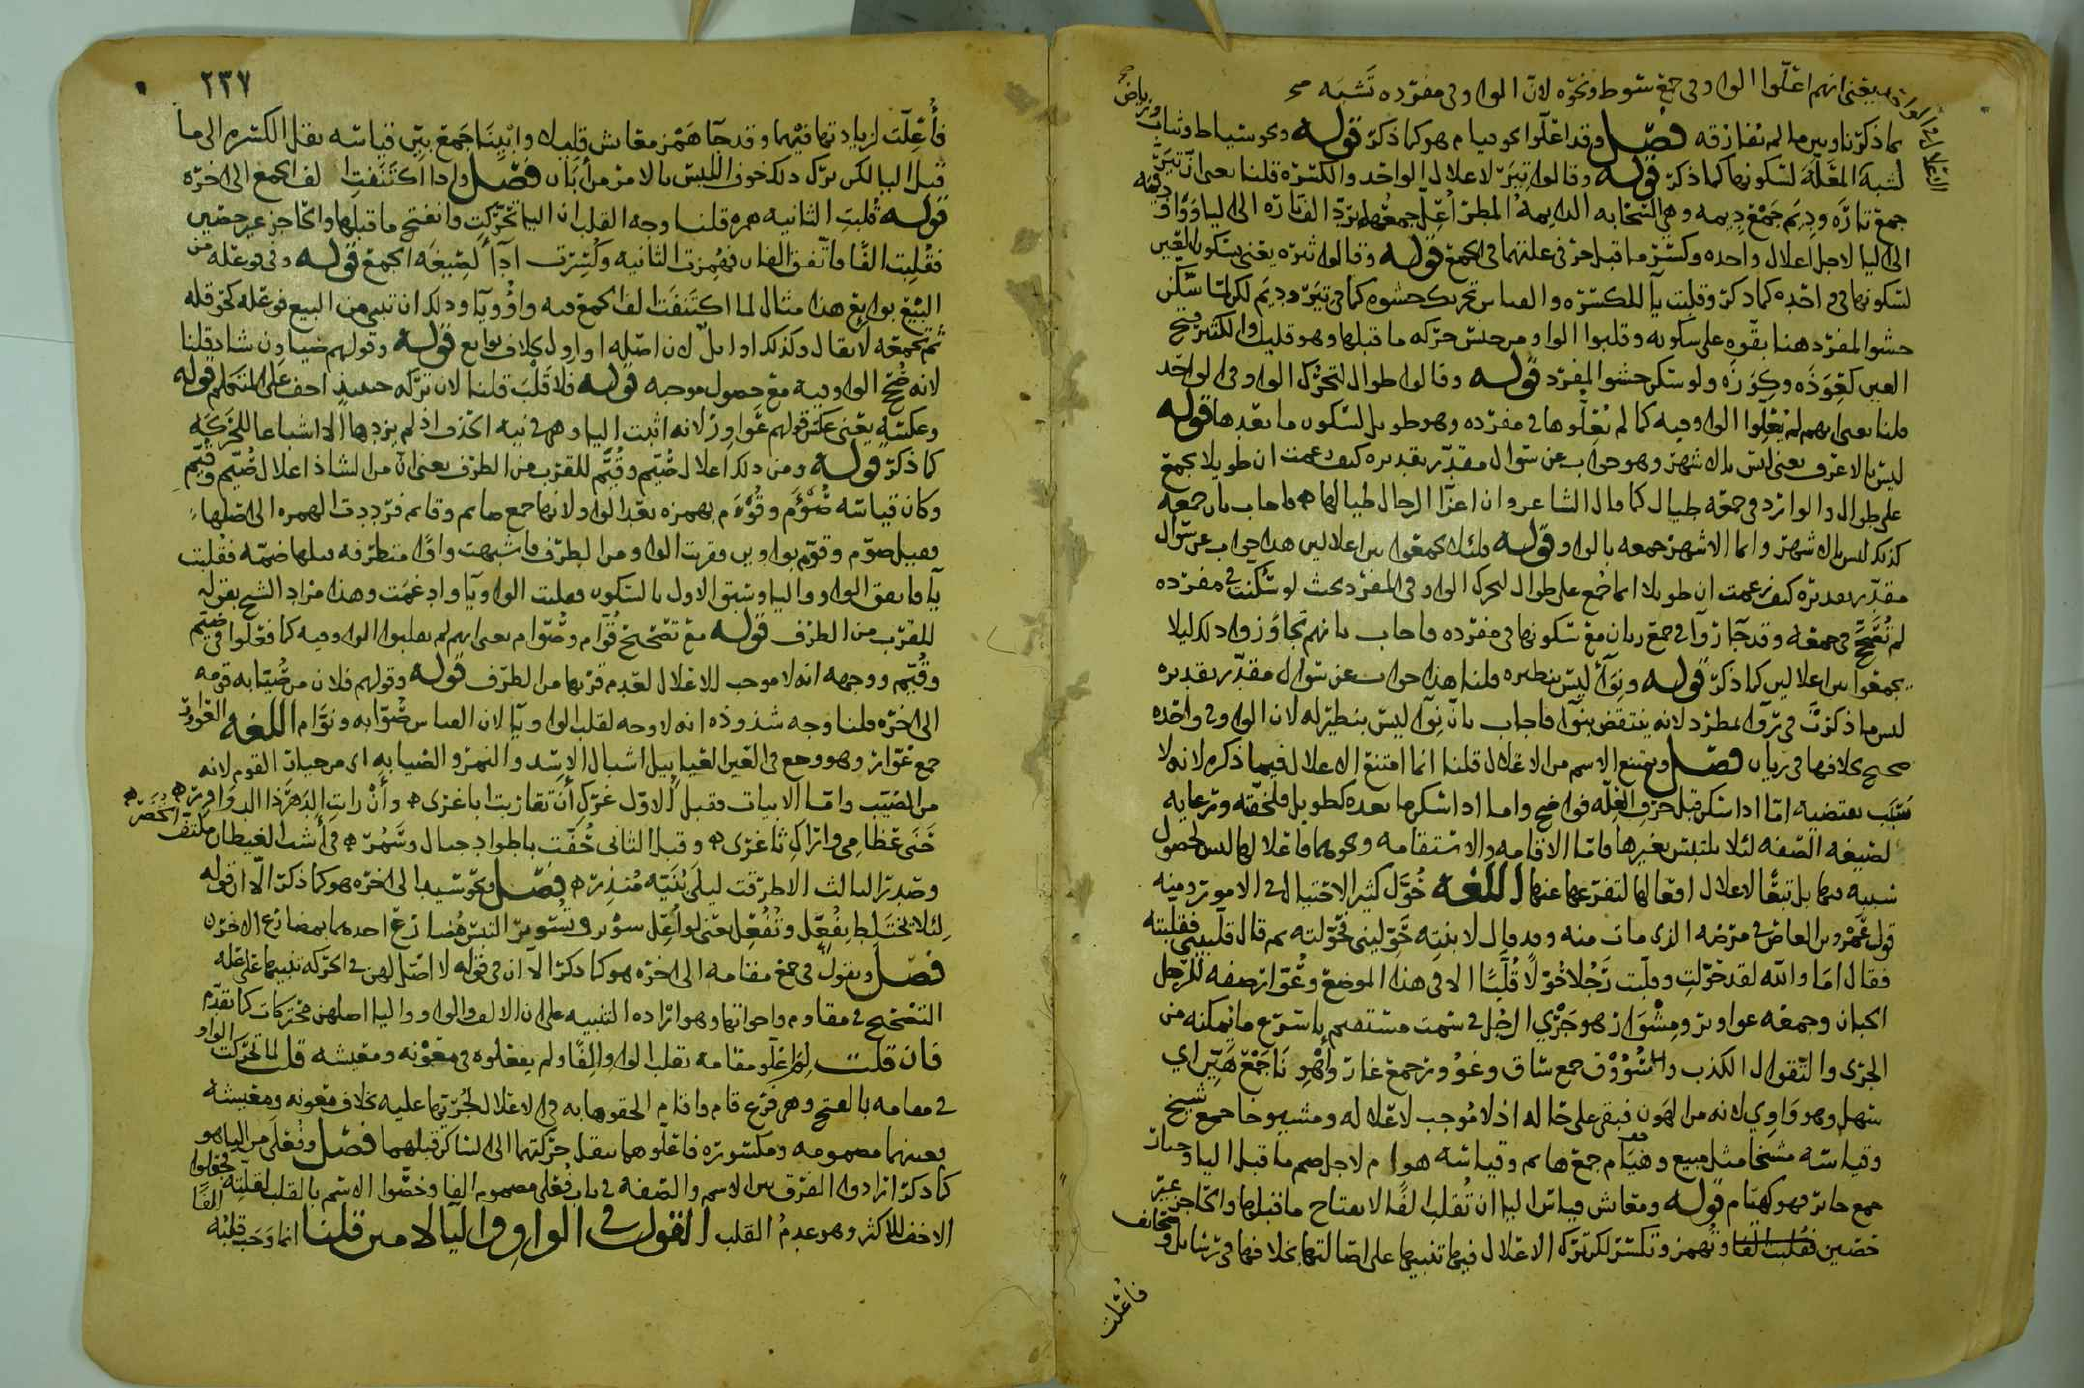 يعني انهم اعلّوا الواو في جمع سوط ونحوه لان الواو في مفرده تشبه
ما ذكرنا وبين ما لم نفارقه فصل وقد اعلّوا نحو قيام هو كما ذكر قوله ونحو سياط وثياب ورياض
لشبه المعلة لسكونها كما ذكر قوله وقالوا تِيَرٌ لاعلال الواحد والكسرة قلنا يعني ان تِيَر
جمع تارة ودِيَم جمع دِيمه وهي السحابة الدايمة المطر اعل جمعهما
الى الياء لاجل اعلال واحده وكسر ما قبل حرف علتهما في الجمع قوله وقالوا ثيرة يعني بسكون العين
لسكونها في واحده كما ذكر وقلبت ياء للكسرة والقياس تحريك حشوه كما في تير وديم لكن لما سكن
حشو المفرد هنا بقوه على سكونه وقلبوا الواو من جنس حركه ما قبلها وهو قليل والكثير فتح
العين كعِوَدَه وكِوَزَه ولو سكن حشو المفرد قوله وقالوا طوال لتحرك الواو في الواحد
قلنا يعني انهم لم يُعِلّوا الواو فيه كما لم يُعلّوها في مفرده وهو طويل لسكون ما بعدها قوله
ليس بالاعرف يعني ليس بالاشهر وهو جواب عن سوال مقدر تقديره كيف زعمت ان طويلا يجمع
على طوال والوارد في جمعه طيال كما قال الشاعر وان اعزّا الرجال طيالها فاجاب بان جمعه
كذلك ليس بالاشهر وانما الاشهر جمعه بالواو قوله لئلا يجمعوا بين اعلالين هذا جواب عن سوال
مقدر تقديره كيف زعمت ان طويلا انما جمع على طوال لتحرك الواو في المفرد بحيث لو سكنت في مفرده
لم تُصَحّ في جمعه وقد جاء رواء في جمع ريان مع سكونها في مفرده فاجاب بانهم تجاوزوا ذلك ليلا
يجمعوا بين اعلالين كما ذكر قوله ونِوَآءٌ ليس بنظيره قلنا هذا جواب عن سوال مقدر تقديره
ليس ما ذكرت في رواء بمطرد لانه ينتقض بنواء فاجاب بان نِواء ليس بنظير له لان الواو في واحده
صحيح بخلافها في ريان فصل ويمتنع الاسم من الاعلال قلنا انما امتنع الاعلال فيما ذكره لانه لا
سبب يقتضيه امّا اذا سكن قبل حرف العله فواضح واما اذا سكن ما بعده كطويل فلخفته ورعايه
لصيغه الصفه لئلا يلتبس بغيرها فاما الاقامه والاستقامه ونحوهما فاعلالهما ليس لحصول
سببه فيهما بل تبعًا لاعلال افعالهما لتفرعهما عنها اللغه حُوّل كثير الاحتيال في الامور ومنه
قول عمرو بن العاص في مرضه الذي مات منه وقد قال لابنيه حَوّليني فحوّلته ثم قال قلّبيني فقلّبته
فقال اما والله لقد حَوّلتِ وقلّبت رَجُلا حُوّلا قُلّبًا الا في هذا الموضع وعُوّار صفه للرجل
الجبان وجمعه عواوير ومِشْوَار هو جَرْي الرجل في سمت مستقيم باسرع ما يمكنه من
الجري والتقوال الكذب والسُؤُوْق جمع ساق وغوور جمع غار وأهْوِنَاء جَمْع هَيّن اي
سَهل وهو وَاوِي لانه من الهَون فبقي على حاله اذ لا مُوجب لاعلاله ومشيوخا جمع شيخ
وقياسه مشيخا مثل مبيع وهُيّام جمع هايم وقياسه هوام لاجل ضم ما قبل الياء
جمع حاير فهو كهيّام قوله ومعاش قياس الياء ان تُقلب الفا لانفتاح ما قبلها والحاجز غير
حصين فقلبت الفا وتُهمز وتكسر لكن ترك الاعلال فيها تنبيها على اصالتها بخلافها في رسايل وصحايف
فاُعلت
٢٣٧
فأُعِلّت لزيادتها فيهما وقد جاء هَمْز معايش قليلا وابْيِنَا جَمع بيّن قياسه نقل الكسره الى ما
قبل الياء لكن ترك ذلك خوف اللبس بالامر من أَبَان فصل واذا اكتنفت الف الجمع الى اخره
قوله قُلبت الثانيه همزه قلنا وجه القلب ان الياء تحركت وانفتح ما قبلها والحاجز غير حصين
فقلبت الفًا فاتّفق الفان فهُمِزت الثانيه وكُسِرت اداء لصيغه الجمع قوله وفي فوعَله من
البَيْع بوايع هذا مثال لما اكتنفت الف الجمع فيه واوٌ وياء وذلك ان تبني من البيع فوعله كحوقله
ثم تجمعه لا يقال وكذلك اوايل لان اصله اواول بخلاف بوايع قوله وقولهم ضياون شاذ قلنا
لانه صُحّح الواو فيه مع حصول موجبه قوله فلا قَلْبَ قلنا لان تركه حينيذ اخف على المتكلم قوله
وعكسه يعني عكس قولهم عَوَاوِر لانه اثبت الياء وهي في نيه الحذف اذ لم يزدها الا اشباعا للحركه
كما ذكر قوله ومن ذلك اعلال صُيّم وقُيّم للقرب من الطرف يعني انّ من الشاذ اعلال صُيّم وقُيّم
وكان قياسه صُوّم وقُوّم بهمزه بعد الواو لانهما جمع صايم وقايم فردت الهمزه الى اصلها
فقيل صوّم وقوّم بواوين وقربت الواو من الطرف فاشبهت واوًا متطرفه قبلها ضمه فقُلبت
ياء فاتفق الواو والياء وسبق الاول بالسكون فقلبت الواو ياء وادغمت وهذا مراد الشيخ بقوله
للقرب من الطرف قوله مع تصحيح قُوّام وصُوّام يعني انهم لم يقلبوا الواو فيه كما فعلوا في صُيّم
وقُيّم ووجهه انه لا موجب للاعلال لعدم قربها من الطرف قوله وقولهم فلان من صُيّابة قومه
الى اخره قلنا وجه شذوذه انه لا وجه لقلب الواو ياء لان القياس صُوّابه ونُوّام اللغه العواور
جمع عوّار وهو وجع في العين الغياييل اشبال الاسد والنمر والصيابه اي من خيار القوم لانه
من الصيّب واما الابيات فقبل الاول غرّكِ أَنْ تقاربت اباعري وأَنْ راتِ الدهر ذا الدوايرِ
حَنَى عظامي وارَاه ثاغري وقبل الثاني حُفّت باطواد جبال وسَمُرْ في أشب الغيطان ملتف الحُظُر
وصدر الثالث الا طرقت ليلى بُنَيّه مُنذِر فصل ونحو سيد الى اخره هو كما ذكر الا ان قوله
لئلا يختلط بِفُعّل وتُفُعّل يعني لو أُعِل سُوير وتُسُوير التبس مُضارع احدهما بمضارع الاخر
فصل وتقول في جمع مقامه الى اخره هو كما ذكر الا ان في قوله لا اصل لهن في الحركه تنبيها على عله
التصحيح في مقاوم واخواتها وهو اراده التنبيه على ان الالف والواو والياء اصلهن متحركات كما تقدم
فان قلت لِمَ اعلّوا مقامه بقلب الواو الفًا ولم يفعلوه في معونه ومعيشه قلت لما تحركت الواو
في مقامه بالفتح وهي فَرْع قام واقام الحقوها به في الاعلال لجريها عليه بخلاف معونه ومعيشه
فعينهما مضمومه ومكسوره فاعلّوهما بنقل حركتهما الى الساكن قبلهما فصل وفُعْلَى من الياء هو
كما ذكر ارادوا الفرق بين الاسم والصفه في باب فُعْلَى مضموم الفاء وخصوا الاسم بالقلب لقلته فجعلوا
الاخف للاكثر وهو عدم القلب القول في الواو والياء لامين قلنا انما وَجَب قلبُه الفًا